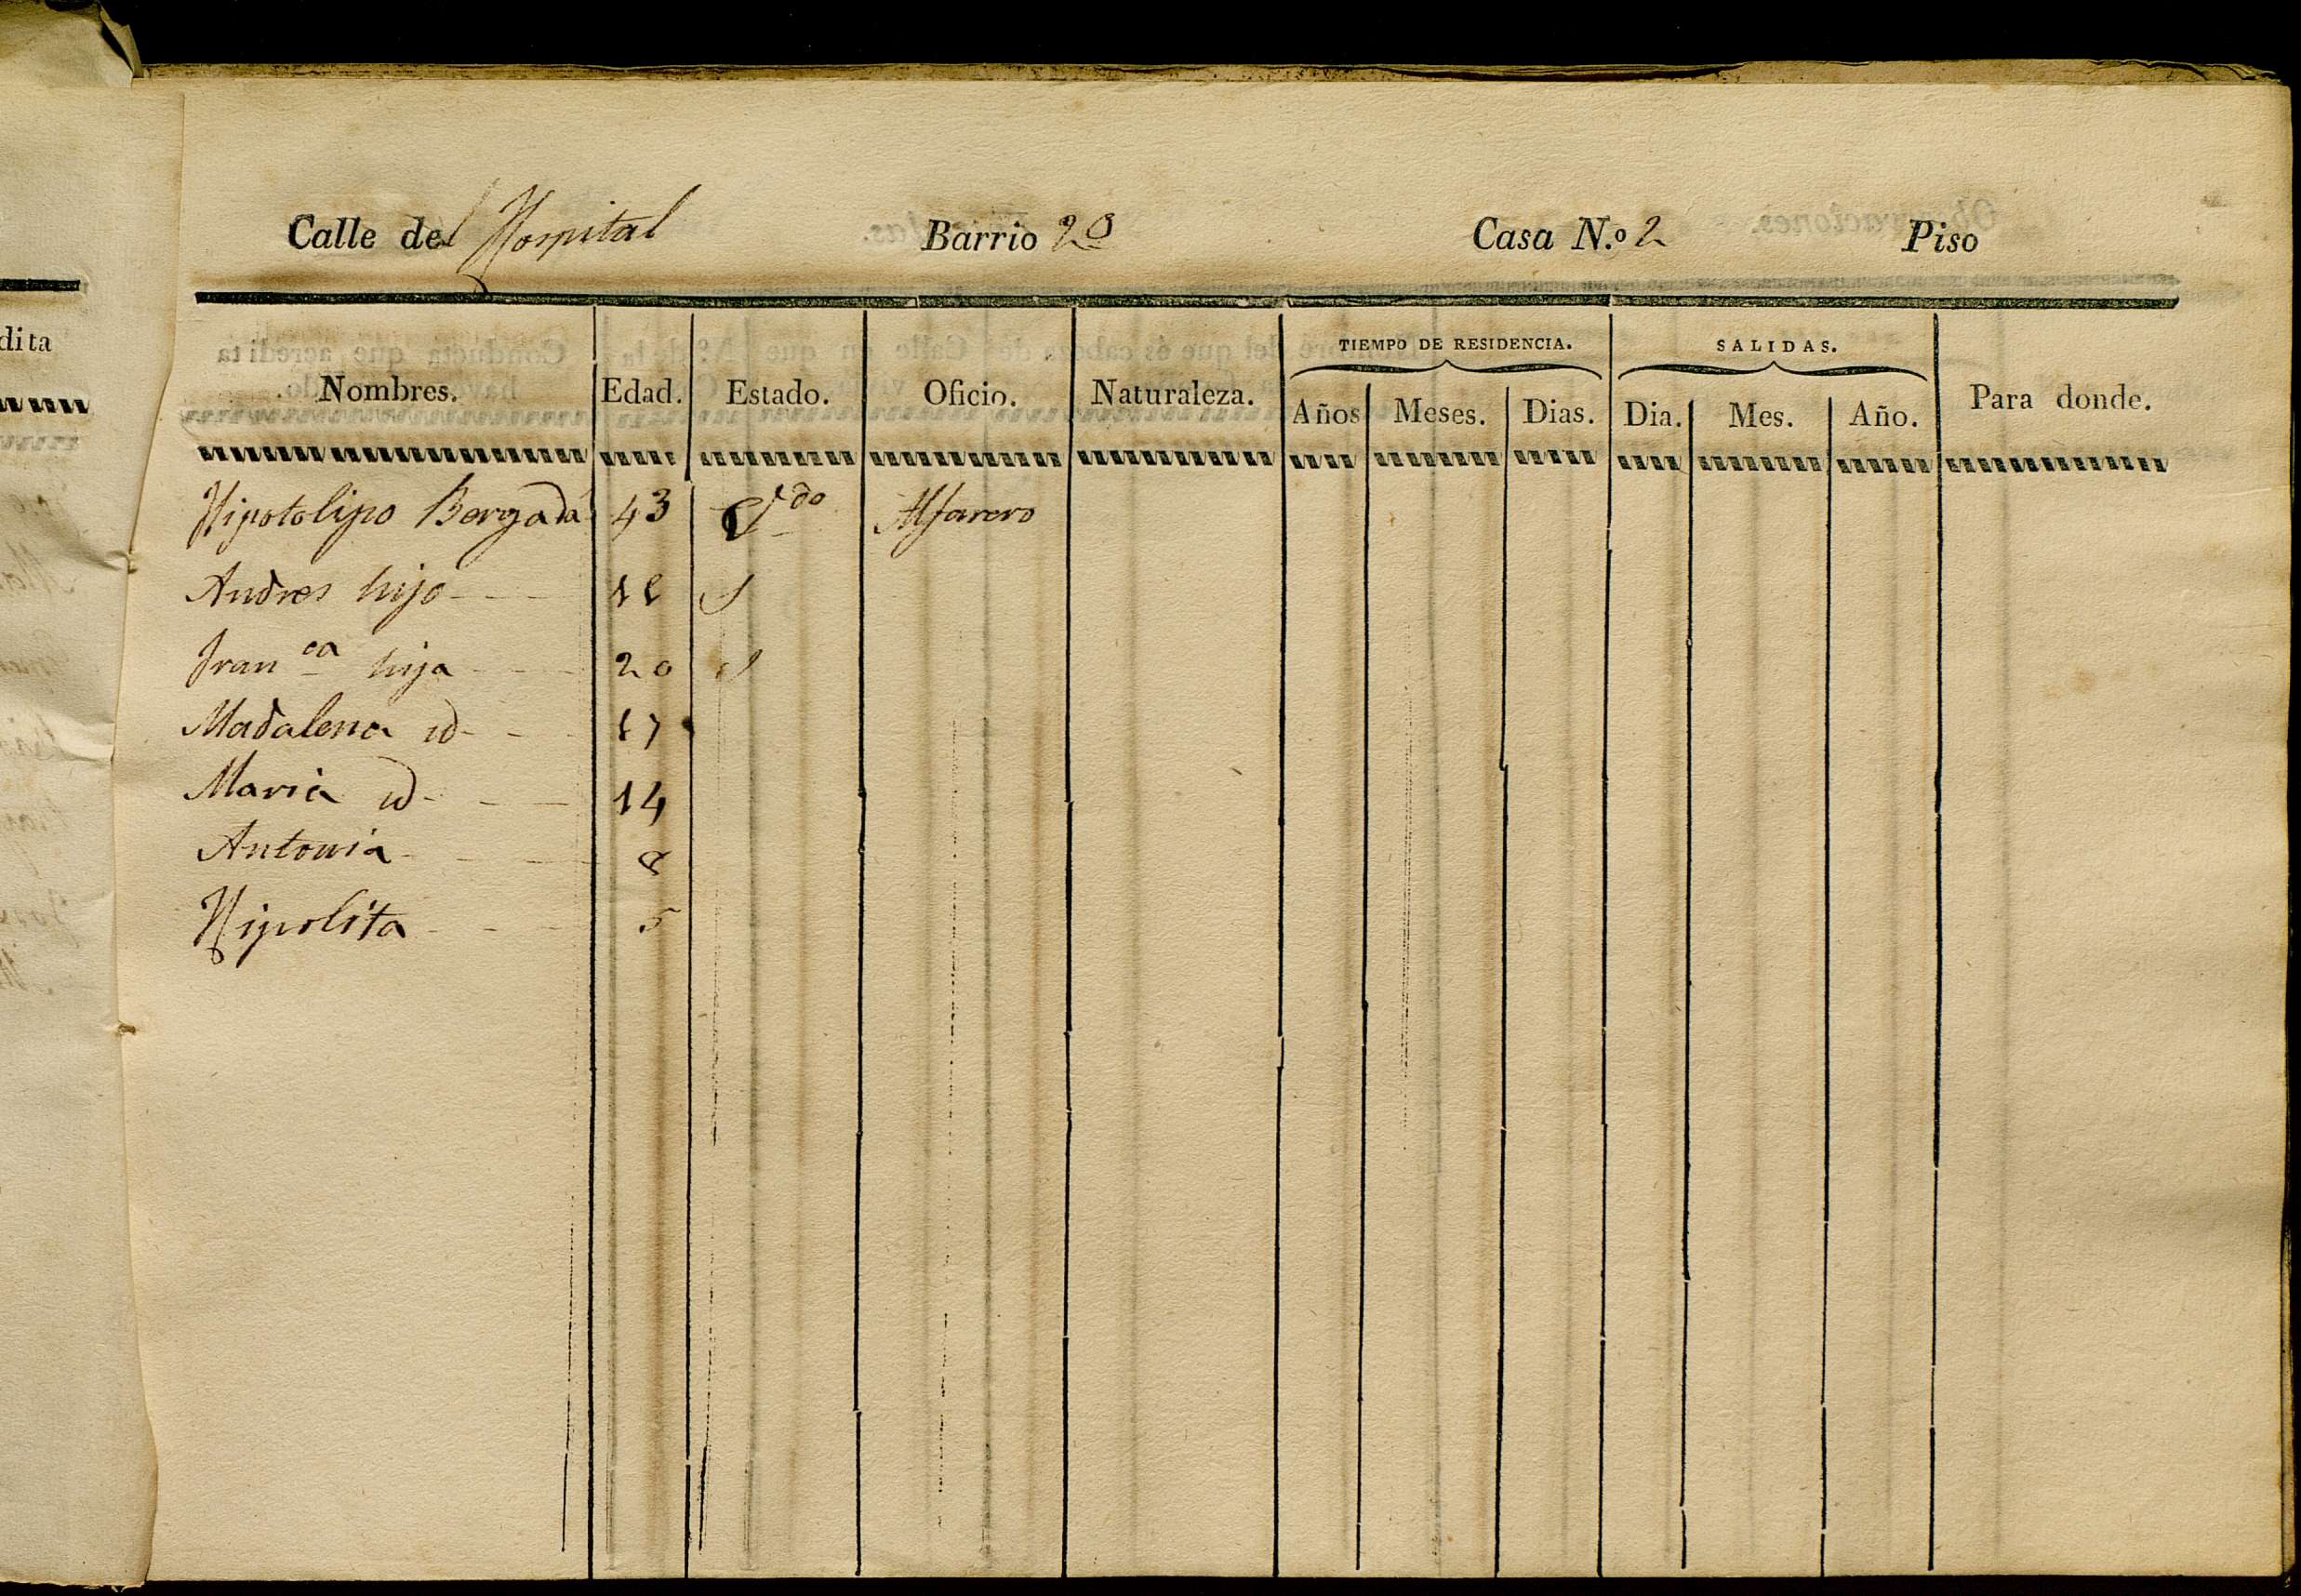 dita
Calle del Hospital Barrio 2º Casa N.º 2 Piso
TIEMPO DE RESIDENCIA. SALIDAS.
Nombres. Edad. Estado. Oficio. Naturaleza. Años Meses. Dias. Dia. Mes. Año. Para donde.
Hipotolipo Bergadá 43 Alfarero
Andres hijo S
Fran ca hija 20 S
Madalena id 17
Maria id 14
Antonia 8
Hipolita 5